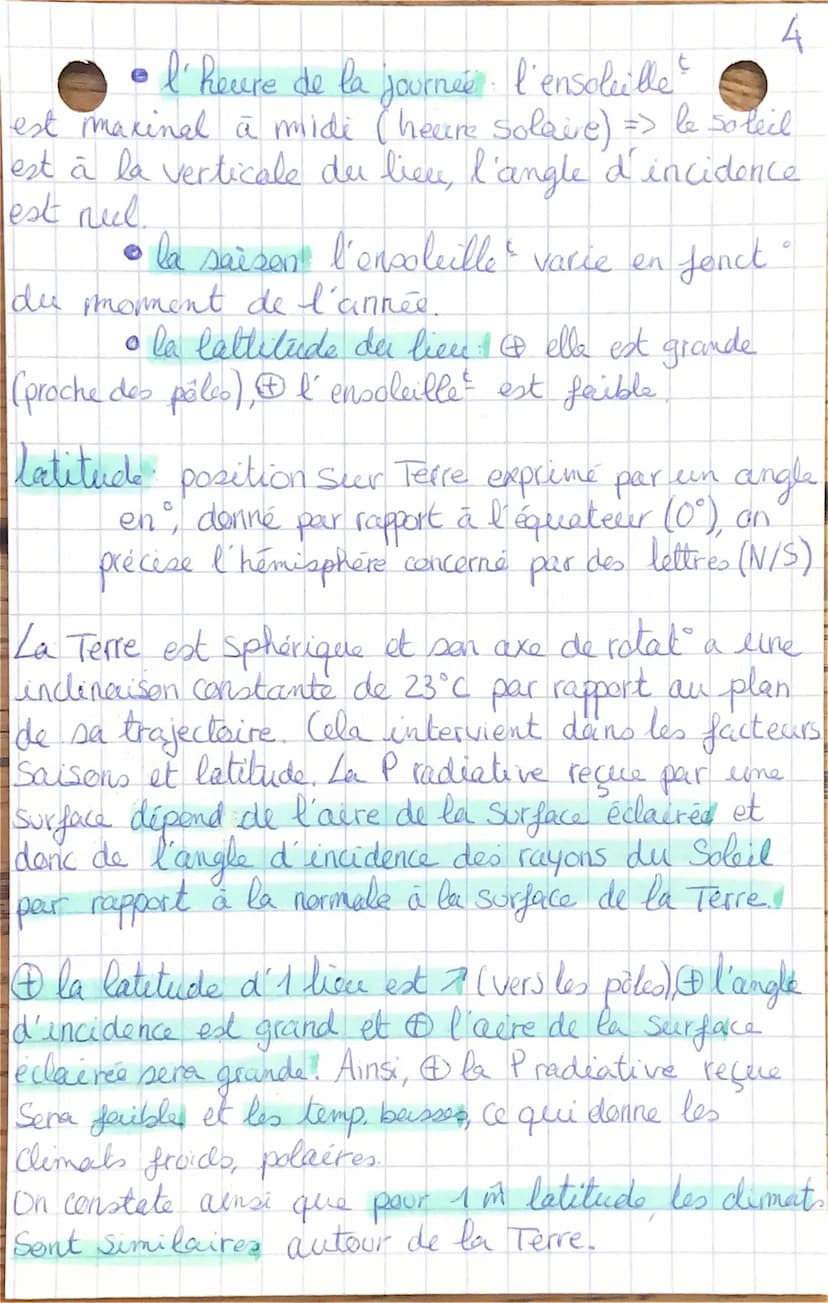 4
• l'heure de la journée : l'ensoleille^t
est maximal à midi (heure solaire) => le soleil
est à la verticale du lieu, l'angle d'incidence
est nul.
• la saison : l'ensoleille^t varie en fonct°
du moment de l'année.
• la lattitude du lieu : ⊕ elle est grande
(proche des pôles), ⊕ l'ensoleille^t est faible.
latitude : position sur Terre exprimé par un angle
en °, donné par rapport à l'équateur (0°), on
précise l'hémisphère concerné par des lettres (N/S)
La Terre est sphérique et son axe de rotat° a une
inclinaison constante de 23°C par rapport au plan
de sa trajectoire. Cela intervient dans les facteurs
saisons et latitude. La P radiative reçue par une
surface dépend de l'aire de la surface éclairée et
donc de l'angle d'incidence des rayons du Soleil
par rapport à la normale à la surface de la Terre.
⊕ la latitude d'1 lieu est ↗ (vers les pôles), ⊕ l'angle
d'incidence est grand et ⊕ l'aire de la surface
éclairée sera grande. Ainsi, ⊕ la P radiative reçue
sera faible et les temp. basses, ce qui donne les
climats froids, polaires.
On constate ainsi que pour 1 m̂ latitude, les climats
sont similaires autour de la Terre.